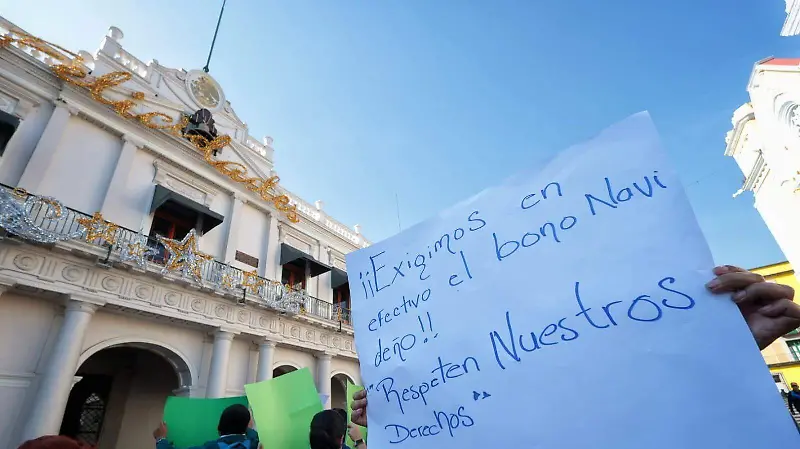 Felicidades
¡¡Exigimos en
efectivo el bono Navi
deño!!
"Respeten Nuestros
Derechos"